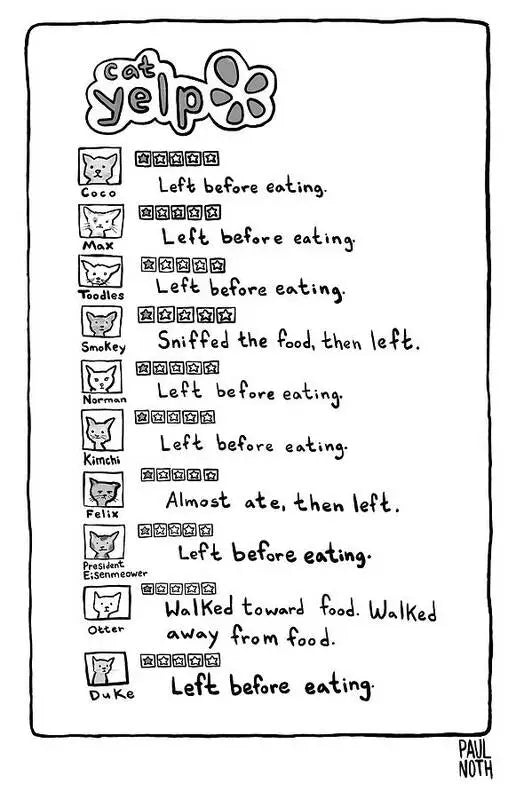 cat
yelp
Coco
Left before eating.
Max
Left before eating.
Toodles
Left before eating.
Smokey
Sniffed the food, then left.
Norman
Left before eating.
Kimchi
Left before eating.
Felix
Almost ate, then left.
President
Eisenmeower
Left before eating.
Otter
Walked toward food. Walked
away from food.
Duke
Left before eating.
PAUL
NOTH